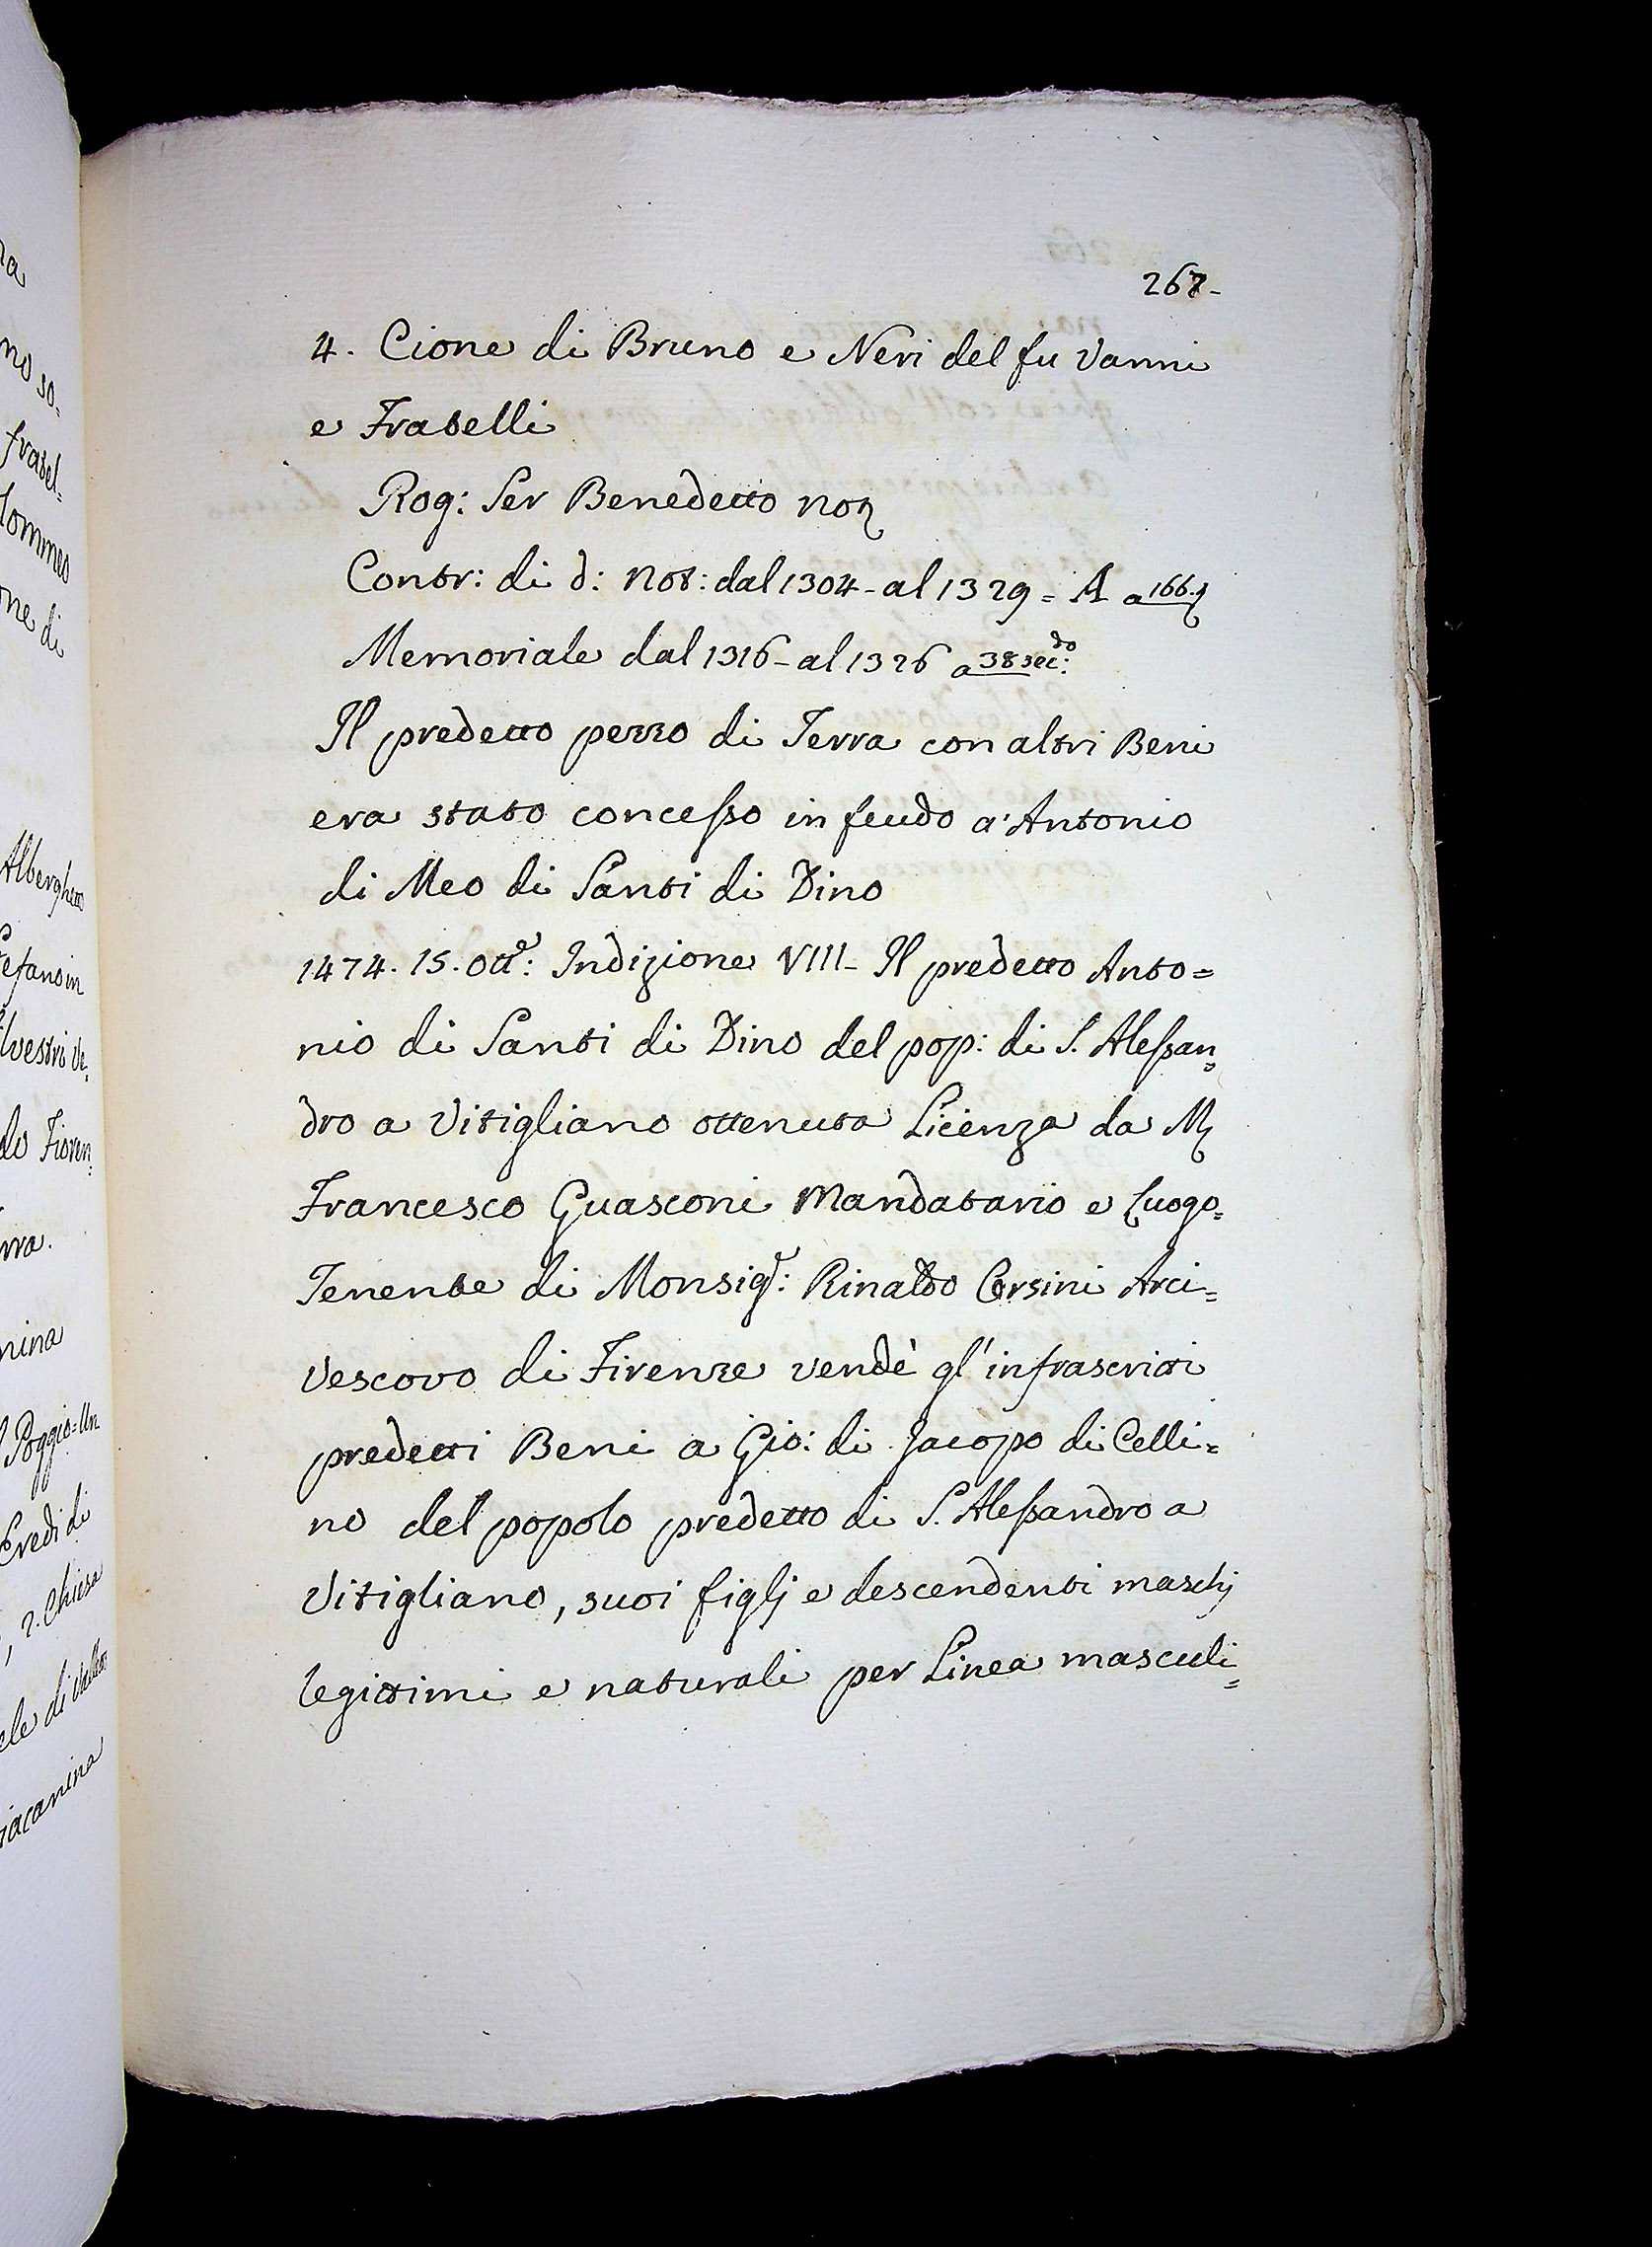 267-
4. Cione di Bruno e Neri del fu Vanni
e Fratelli
Rog: Ser Benedetto Noz
Contr: di d: Not: dal 1304 - al 1329 = A a 166.
Memoriale dal 1316 - al 1326 a 38 sec:do
Il predetto pezzo di Terra con altri Beni
era stato concesso in feudo a' Antonio
di Meo di Santi di Dino
1474. 15. Ott:e Indizione VIII - Il predetto Anto=
nio di Santi di Dino del pop: di S. Alessan=
dro a Vitigliano ottenuta Licenza da M
Francesco Guasconi Mandatario e Luogo=
Tenente di Monsig:r Rinaldo Orsini Arci=
Vescovo di Firenze vendè gl'infrascritti
predetti Beni a Gio: di Jacopo di Celli=
no del popolo predetto di S. Alessandro a
Vitigliano, suoi figlj e descendenti maschj
legittimi e naturali per Linea masculi=
Alberghetto
lvestri
Fioren=
Poggio = Un
Eredi di
2. Chiesa